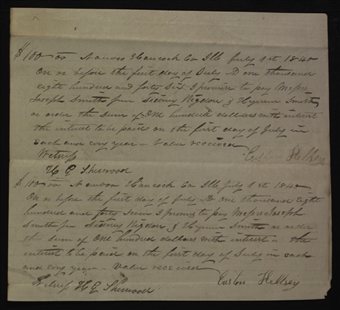 $100.00 Nauvoo Hancock Co Ills July 1st 1840
On or before the first day of July A D one thousand
eight hundred and forty Six I promise to pay Messrs
Joseph Smith Jun Sidney Rigdon & Hyrum Smith
or order the sum of One hundred dollars with interest
the interest to be paid on the first day of July in
each and every year - value received
Witness
H G Sherwood
$100.00 Nauvoo Hancock Co Ills July 1st 1840
On or before the first day of July A D one thousand eight
hundred and forty Seven I promise to pay Messrs Joseph
Smith Jun Sidney Rigdon & Hyrum Smith or order
the sum of One hundred dollars with interest - the
interest to be paid on the first day of July in each
and every year - value received
Witness H G Sherwood